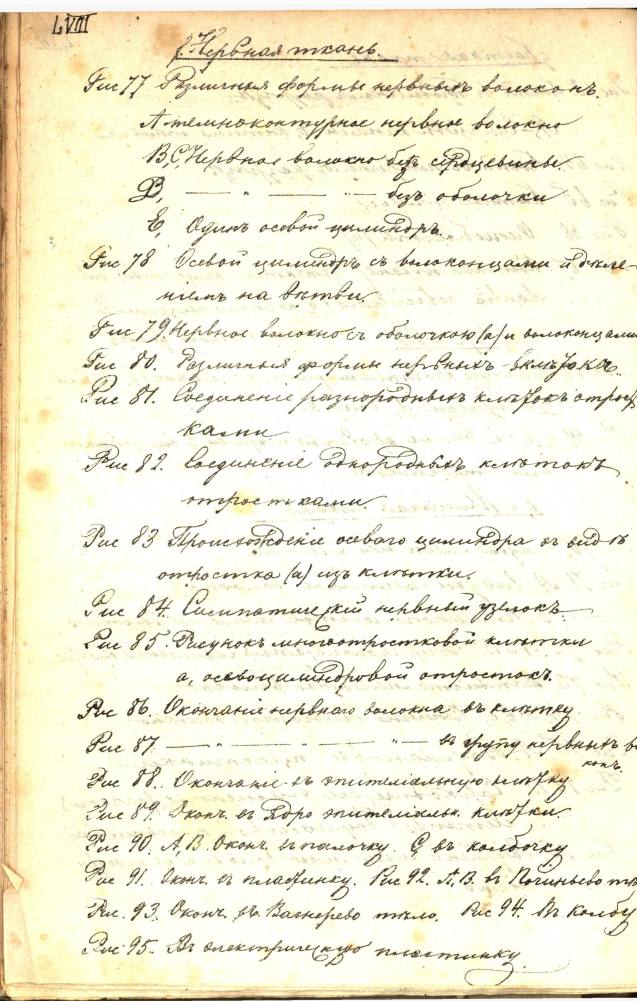 LVIII
7. Нервная ткань.
Рис 77 Различныя формы нервныхъ волоконъ.
А темноконтурное нервное волокно
В, С, Нервное волокно безъ сердцевины.
D, — " — " — безъ оболочки
Е, Одинъ осевой цилиндръ.
Рис 78 Осевой цилиндръ съ волоконцами и дѣле-
ніемъ на вѣтви.
Рис 79. Нервное волокно съ оболочкою (а) и волоконцами
Рис 80. Различныя формы нервныхъ клѣтокъ.
Рис 81. Соединеніе разнородныхъ клѣтокъ отрост
ками
Рис 82. Соединеніе однородныхъ клѣтокъ
отростками.
Рис 83 Происхожденіе осеваго цилиндра въ видѣ
отростка (а) изъ клѣтки.
Рис 84. Симпатическій нервный узелокъ
Рис 85. Рисунокъ многоотростковой клѣтки
а, осевоцилиндровой отростокъ.
Рис 86. Окончаніе нервнаго волокна въ клѣтку
Рис 87. — " — " — " — въ групу нервныхъ во
конъ.
Рис 88. Окончаніе въ эпителіальную клѣтку
Рис 89. Оконч. въ Ядро эпителіальн. клѣтки.
Рис 90. А, В. Оконч. въ палочку. С, въ колбочку
Рис 91. Оконч. въ пластинку. Рис 92. А, В. въ Пачиньево тѣ
Рис. 93. Оконч. въ Вагнерево тѣло. Рис 94. Въ колбу
Рис 95. Въ электрическую пластинку